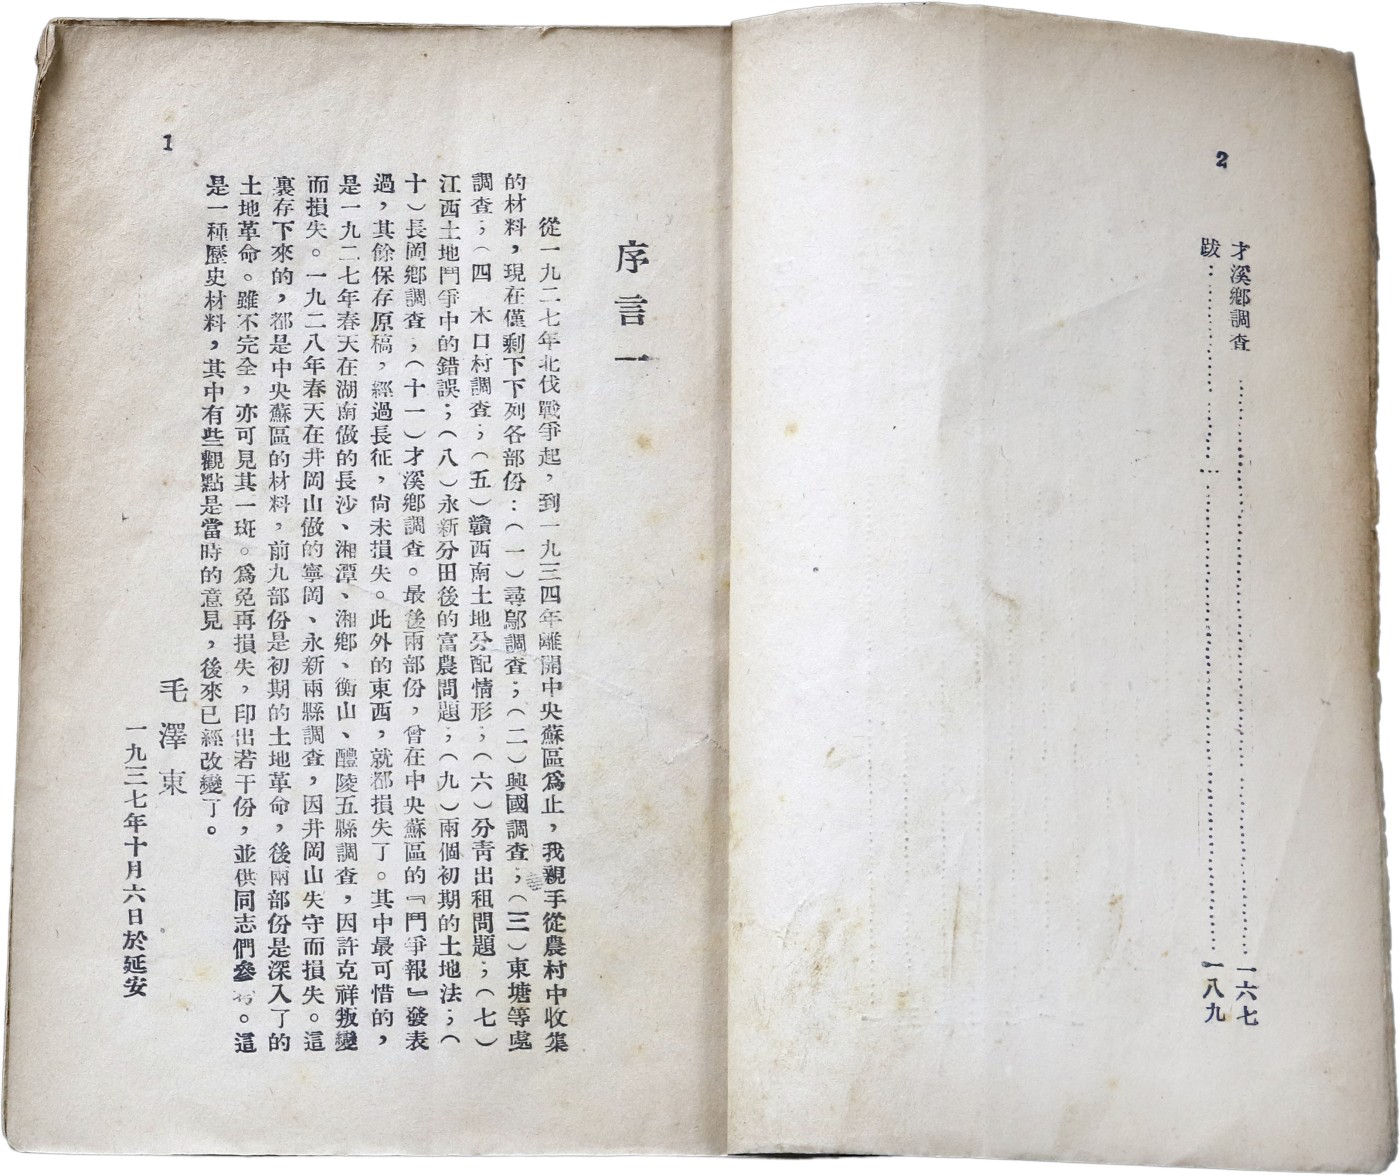 2
才溪鄉調查……………………一六七
跋……………………一八九
序言一
從一九二七年北伐戰爭起，到一九三四年離開中央蘇區爲止，我親手從農村中收集
的材料，現在僅剩下下列各部份：（一）尋鄔調查；（二）興國調查；（三）東塘等處
調查；（四 木口村調查；（五）贛西南土地分配情形；（六）分青出租問題；（七）
江西土地鬥爭中的錯誤；（八）永新分田後的富農問題；（九）兩個初期的土地法；（
十）長岡鄉調查；（十一）才溪鄉調查。最後兩部份，曾在中央蘇區的『鬥爭報』發表
過，其餘保存原稿，經過長征，尙未損失。此外的東西，就都損失了。其中最可惜的，
是一九二七年春天在湖南做的長沙、湘潭、湘鄉、衡山、醴陵五縣調查，因許克祥叛變
而損失。一九二八年春天在井岡山做的寧岡、永新兩縣調查，因井岡山失守而損失。這
裏存下來的，都是中央蘇區的材料，前九部份是初期的土地革命，後兩部份是深入了的
土地革命。雖不完全，亦可見其一斑。爲免再損失，印出若干份，並供同志們參 。這
是一種歷史材料，其中有些觀點是當時的意見，後來已經改變了。
毛澤東
一九三七年十月六日於延安
1